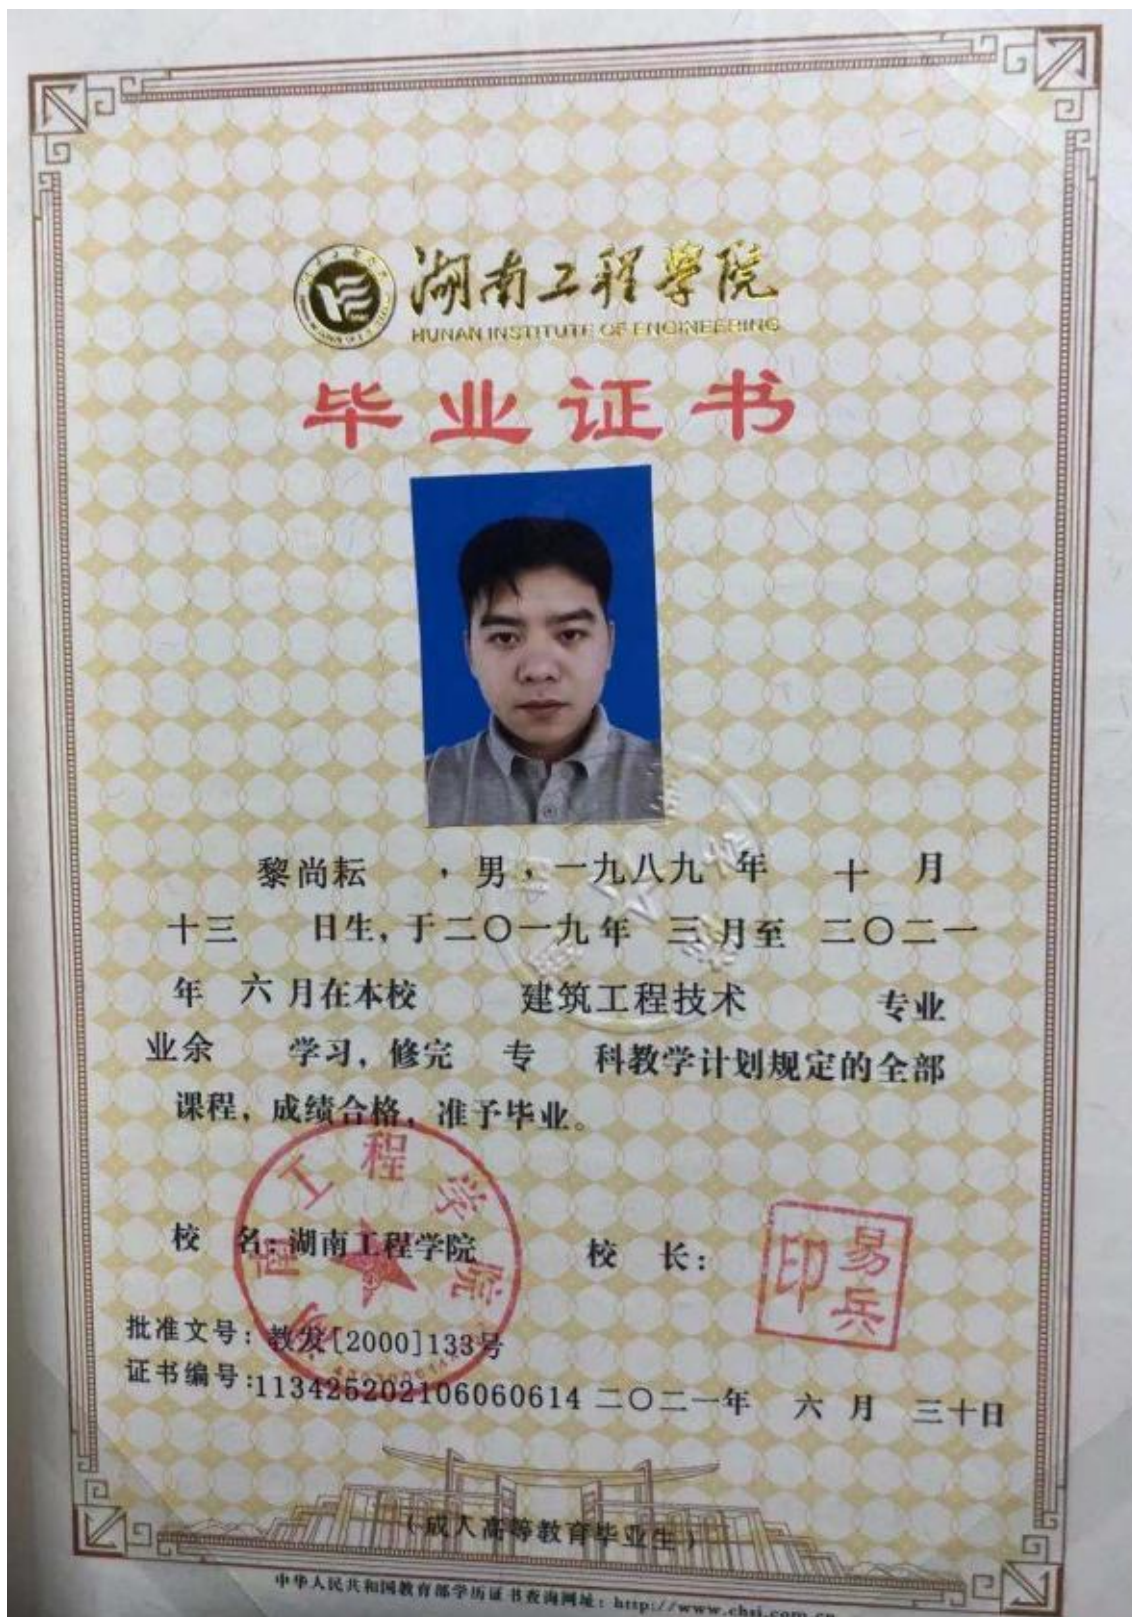 湖南工程學院
HUNAN INSTITUTE OF ENGINEERING
毕业证书
黎尚耘 ，男，一九八九 年 十 月
十三 日生，于二〇一九年 三 月至 二〇二一
年 六 月在本校 建筑工程技术 专业
业余 学习，修完 专 科教学计划规定的全部
课程，成绩合格，准予毕业。
校 名：湖南工程学院 校 长：
易兵印
批准文号：教发[2000]133号
证书编号：113425202106060614 二〇二一年 六 月 三十日
（成人高等教育毕业生）
中华人民共和国教育部学历证书查询网址：http://www.chsi.com.cn